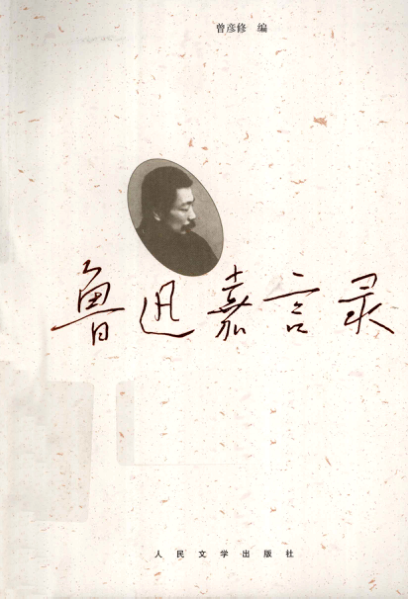 曾彦修 编
鲁迅嘉言录
人民文学出版社